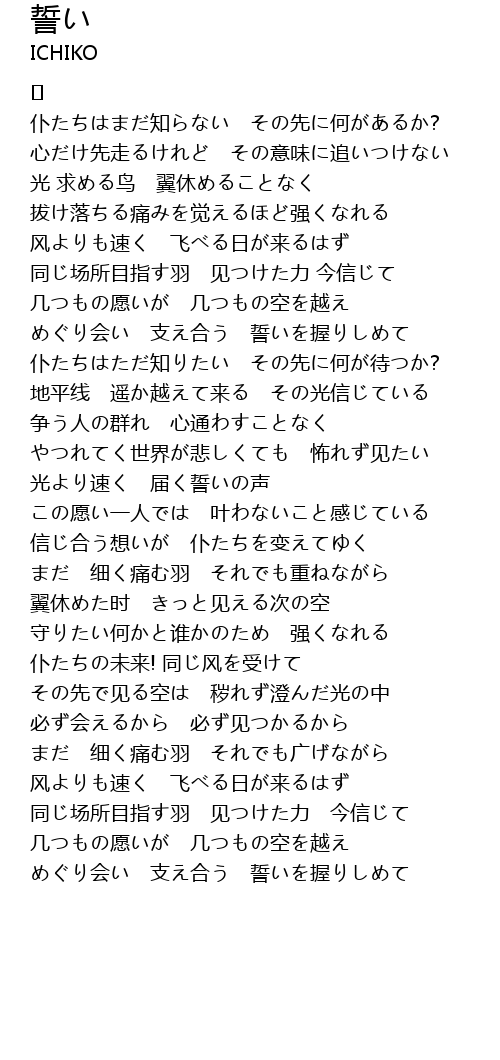 誓い
ICHIKO
[]
仆たちはまだ知らない　その先に何があるか?
心だけ先走るけれど　その意味に追いつけない
光 求める鸟　翼休めることなく
拔け落ちる痛みを覚えるほど强くなれる
风よりも速く　飞べる日が来るはず
同じ场所目指す羽　见つけた力 今信じて
几つもの愿いが　几つもの空を越え
めぐり会い　支え合う　誓いを握りしめて
仆たちはただ知りたい　その先に何が待つか?
地平线　遥か越えて来る　その光信じている
争う人の群れ　心通わすことなく
やつれてく世界が悲しくても　怖れず见たい
光より速く　届く誓いの声
この愿い一人では　叶わないこと感じている
信じ合う想いが　仆たちを变えてゆく
まだ　细く痛む羽　それでも重ねながら
翼休めた时　きっと见える次の空
守りたい何かと谁かのため　强くなれる
仆たちの未来! 同じ风を受けて
その先で见る空は　秽れず澄んだ光の中
必ず会えるから　必ず见つかるから
まだ　细く痛む羽　それでも广げながら
风よりも速く　飞べる日が来るはず
同じ场所目指す羽　见つけた力　今信じて
几つもの愿いが　几つもの空を越え
めぐり会い　支え合う　誓いを握りしめて